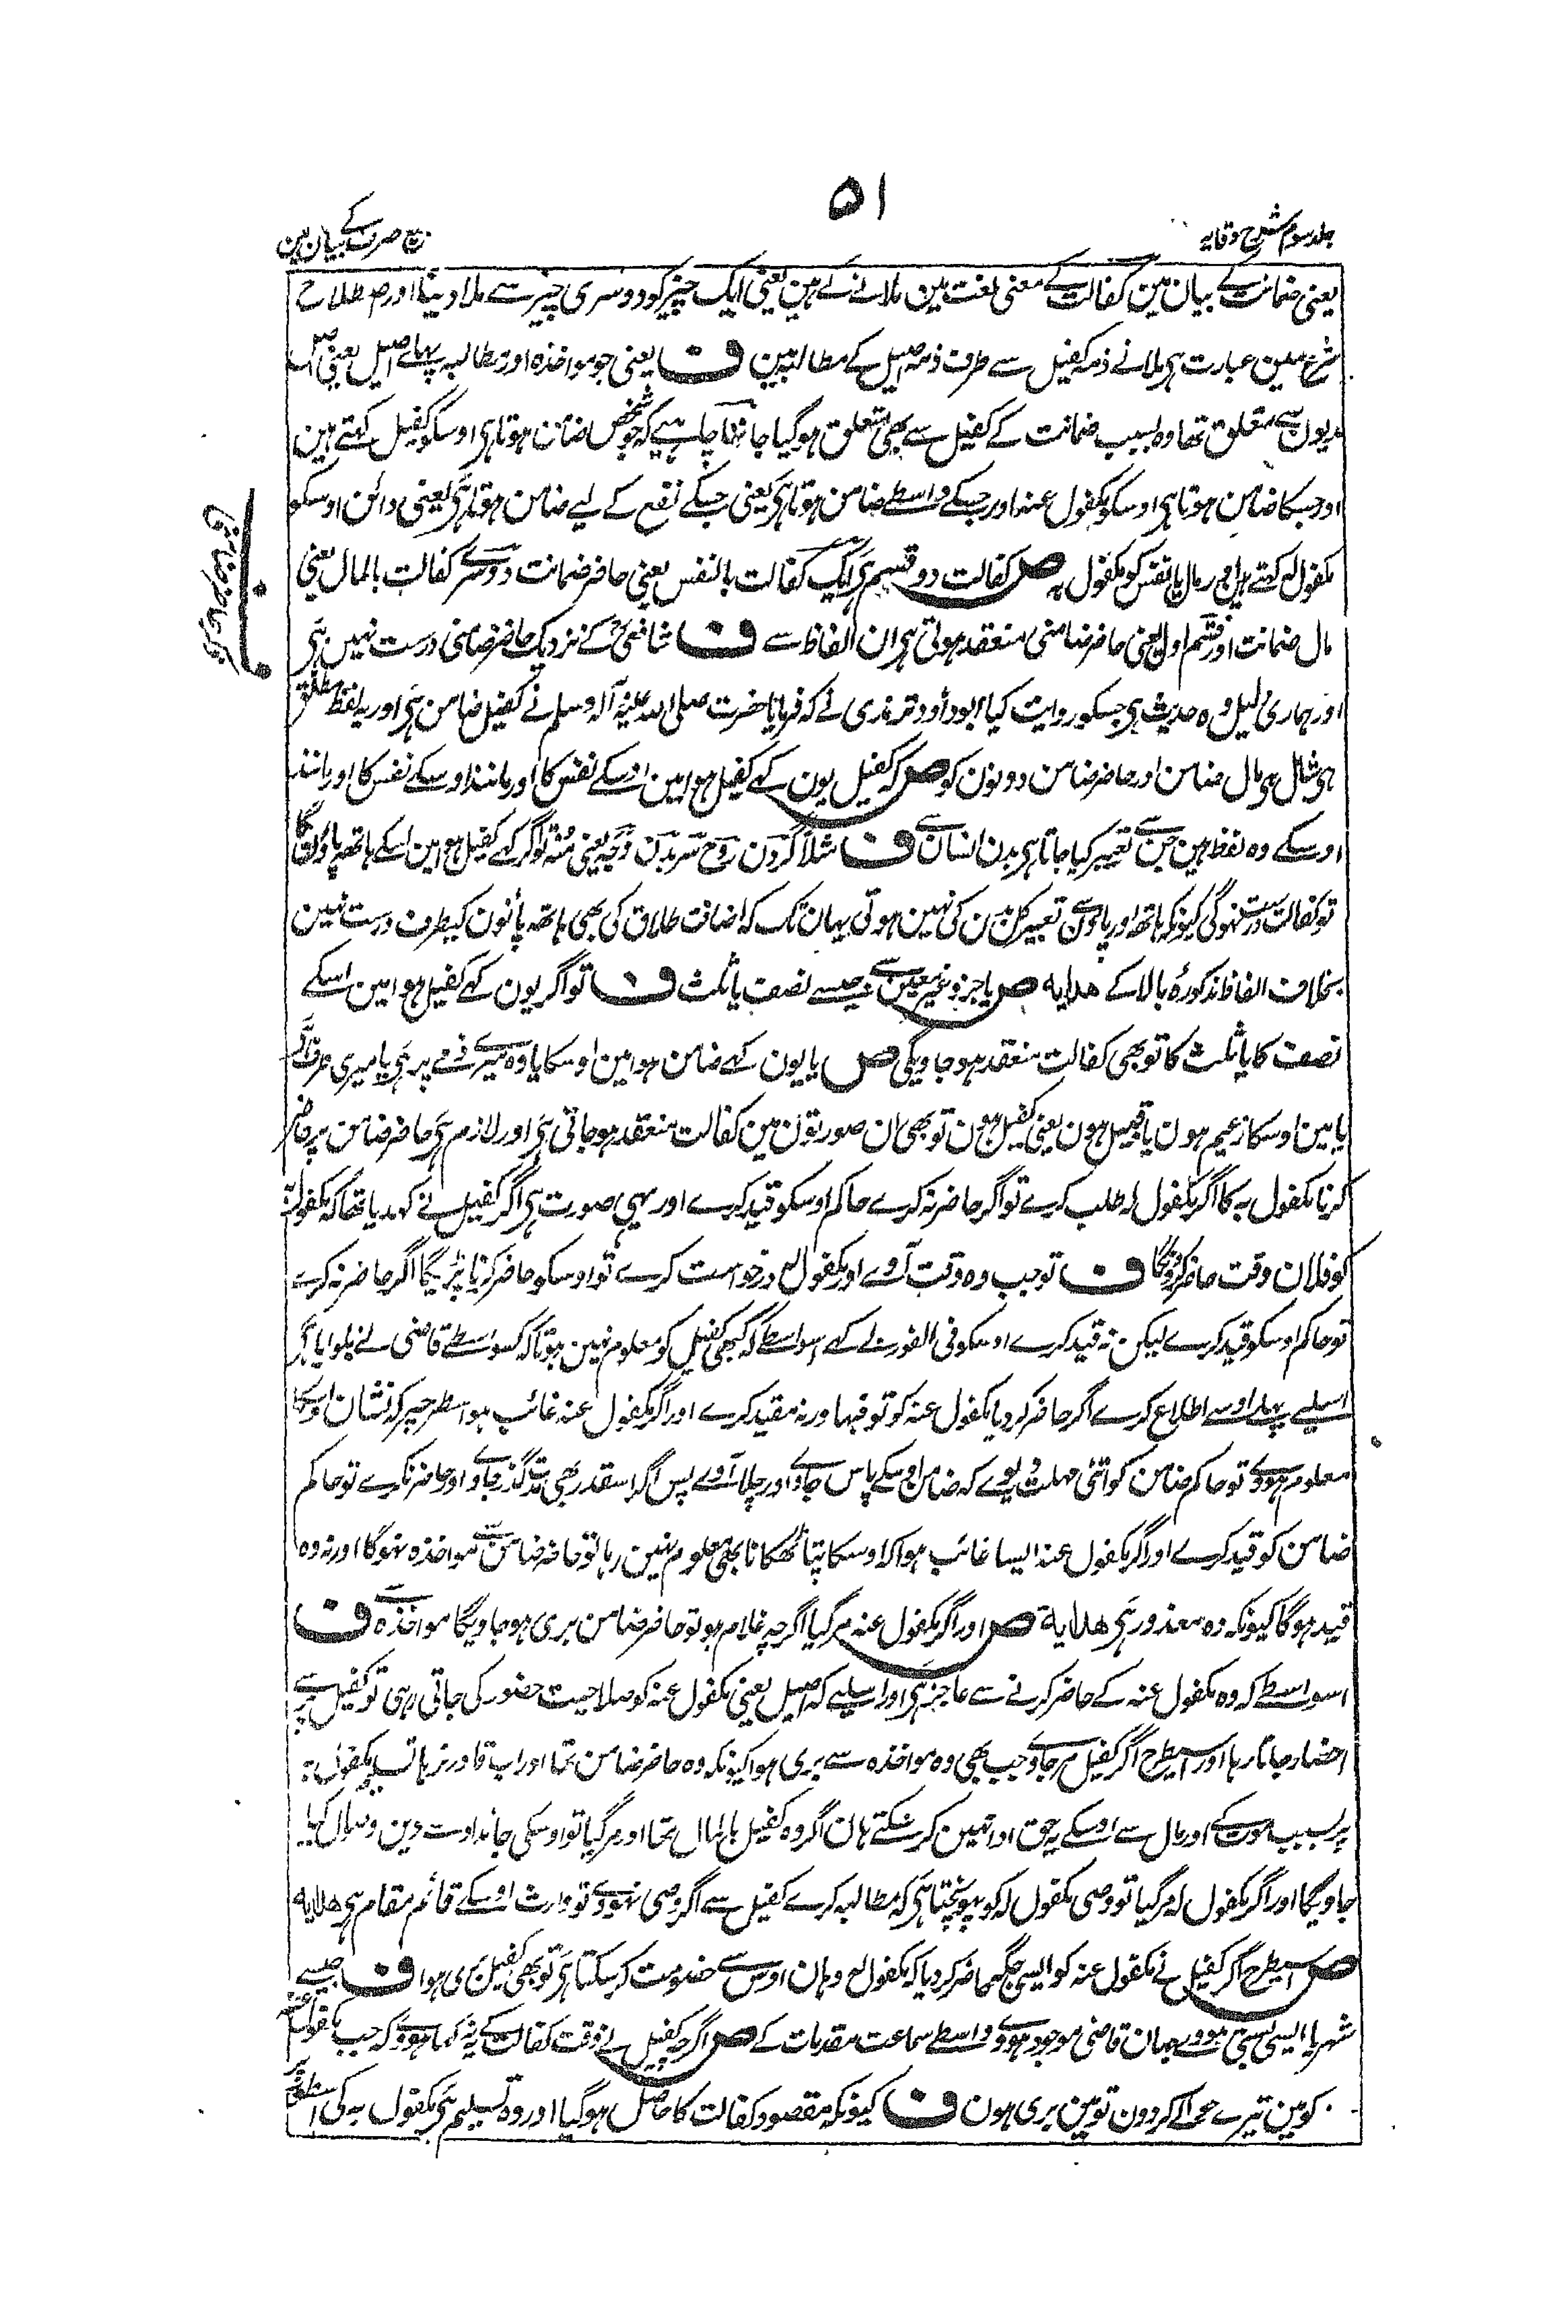 ۵۱
جلد سوم شرح وقایہ
بیع صرف کے بیان مین
یعنی ضمانت کے بیان مین کفالت کے معنی لغت مین ملانے کے ہین یعنی ایک چیز کو دوسری چیز سے ملا دینا اور اصطلاح
شرع مین عبارت ہی ملانے ذمہ کفیل سے طرف ذمہ اصیل کے مطالبہ مین ف یعنی جو مواخذہ اور مطالبہ پہلے اصیل یعنی اصل
مدیون سے متعلق تھا وہ بسبب ضمانت کے کفیل سے بھی متعلق ہو گیا جاننا چاہیے کہ جو شخص ضامن ہوتا ہی اوسکو کفیل کہتے ہین
اور جسکا ضامن ہوتا ہی اوسکو مکفول عنہ اور جسکے واسطے ضامن ہوتا ہی یعنی جسکے نفع کے لیے ضامن ہوتا ہی یعنی دائن اوسکو
مکفول لہ کہتے ہین اور مال یا نفس کو مکفول بہ ص کفالت دو قسم ہی ایک کفالت بالنفس یعنی حاضر ضمانت دوسرے کفالت بالمال یعنی
مال ضمانت اور قسم اول یعنی حاضر ضامنی منعقد ہوتی ہی ان الفاظ سے ف شافعیؒ کے نزدیک حاضر ضامنی درست نہین ہی
اور ہماری دلیل وہ حدیث ہی جسکو روایت کیا ابوداؤد و ترمذی نے کہ فرمایا حضرت صلی اللہ علیہ وآلہ وسلم نے کفیل ضامن ہی اور یہ لفظ مطلق
ہی شامل ہی مال ضامن اور حاضر ضامن دونون کو ص کہ کفیل یون کہے کفیل ہوا مین اوسکے نفس کا اور مانند اوسکے نفس کا اور مانند
اوسکے وہ لفظ ہین جن سے تعبیر کیا جاتا ہی بدن انسان سے ف مثلاً گردن روح سر بدن وجہ یعنی منہ تو اگر کہے کفیل ہوا مین اسکے ہاتھ پاؤن کا
تو کفالت درست نہوگی کیونکہ ہاتھ اور پاؤن سے تعبیر کل بدن کی نہین ہوتی یہان تک کہ اضافت طلاق کی بھی ہاتھ پاؤن کیطرف درست نہین
بخلاف الفاظ مذکورۂ بالا کے ھدایہ ص یا جزو غیر معین سے جیسے نصف یا ثلث ف تو اگر یون کہے کفیل ہوا مین اسکے
نصف کا یا ثلث کا تو بھی کفالت منعقد ہو جاویگی ص یا یون کہے ضامن ہوا مین اوسکا یا وہ میرے ذمے پر ہی یا میری طرف ہے
یا مین اوسکا زعیم ہون یا قبیل ہون یعنی کفیل ہون تو بھی ان صورتون مین کفالت منعقد ہو جاتی ہی اور لازم ہی حاضر ضامن پر حاضر
کرنا مکفول بہ کا اگر مکفول لہ طلب کرے تو اگر حاضر نہ کرے حاکم اوسکو قید کرے اور یہی صورت ہی اگر کفیل نے کہدیا تھا کہ مکفول بہ
کو فلان وقت حاضر کرونگا ف تو جب وہ وقت آوے اور مکفول لہ درخواست کرے تو اوسکو حاضر کرنا پڑیگا اگر حاضر نہ کرے
تو حاکم اوسکو قید کرے لیکن نہ قید کرے اوسکو فی الفور اسواسطے کہ کبھی کفیل کو معلوم نہین ہوتا کہ کسواسطے قاضی نے بلوایا ہی
اسلیے پہلے اوسے اطلاع کرے اگر حاضر کر دیا مکفول عنہ کو تو فبہا ورنہ مقید کرے اور اگر مکفول عنہ غائب ہوا سطرحپر کہ نشان اوسکا
معلوم ہووے تو حاکم ضامن کو اتنی مہلت دیوے کہ ضامن اوسکے پاس جاوے اور چلا آوے پس اگر اسقدر بھی مدت گذر جاوے اور حاضر نکرے تو حاکم
ضامن کو قید کرے اور اگر مکفول عنہ ایسا غائب ہوا کہ اوسکا پتا ٹھکانا بھی معلوم نہین رہا تو حاضر ضامن سے مواخذہ نہوگا اور نہ وہ
قید ہوگا کیونکہ وہ معذور ہی ھدایة ص اور اگر مکفول عنہ مر گیا اگرچہ غلام ہو تو حاضر ضامن بری ہو جاویگا مواخذہ سے ف
اسواسطے کہ وہ مکفول عنہ کے حاضر کرنے سے عاجز ہی اور اسلیے کہ اصیل یعنی مکفول عنہ کو صلاحیت حضور کی جاتی رہی تو کفیل پر سے
احضار جاتا رہا اور اسیطرح اگر کفیل مر جاوے جب بھی وہ مواخذہ سے بری ہوا کیونکہ وہ حاضر ضامن تھا اور اب قادر نرہا تسلیم مکفول بہ
پر بسبب موت کے اور مال سے اوسکے یہ حق ادا نہین کر سکتے ہان اگر وہ کفیل بالمال تھا اور مر گیا تو اوسکی جائداد سے دین وصول کیا
جاویگا اور اگر مکفول لہ مر گیا تو وصی مکفول لہ کو پہونچتا ہی کہ مطالبہ کرے کفیل سے اگر وصی نہووے تو وارث اوسکے قائم مقام ہی ھدایہ
ص اسیطرح اگر کفیل نے مکفول عنہ کو ایسی جگہ حاضر کر دیا کہ مکفول لہ وہان اوس سے خصومت کر سکتا ہی تو بھی کفیل بری ہوا ف جیسے
شہر یا ایسی بستی ہووے جہان قاضی موجود ہووے واسطے سماعت مقدمات کے ص اگرچہ کفیل نے وقت کفالت کے یہ نہ کہا ہووے کہ جب مکفول عنہ
کو مین تیرے حوالے کر دون تو مین بری ہون ف کیونکہ مقصود کفالت کا حاصل ہو گیا اور وہ تسلیم ہی مکفول بہ کی